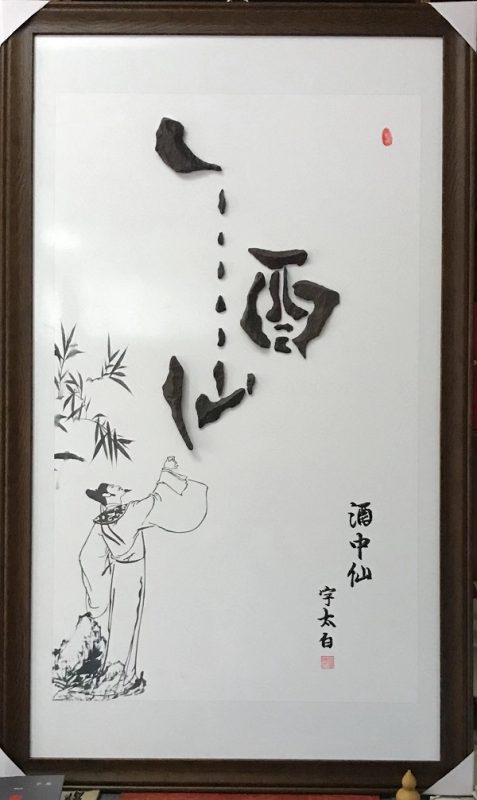 酒仙
酒中仙
字太白